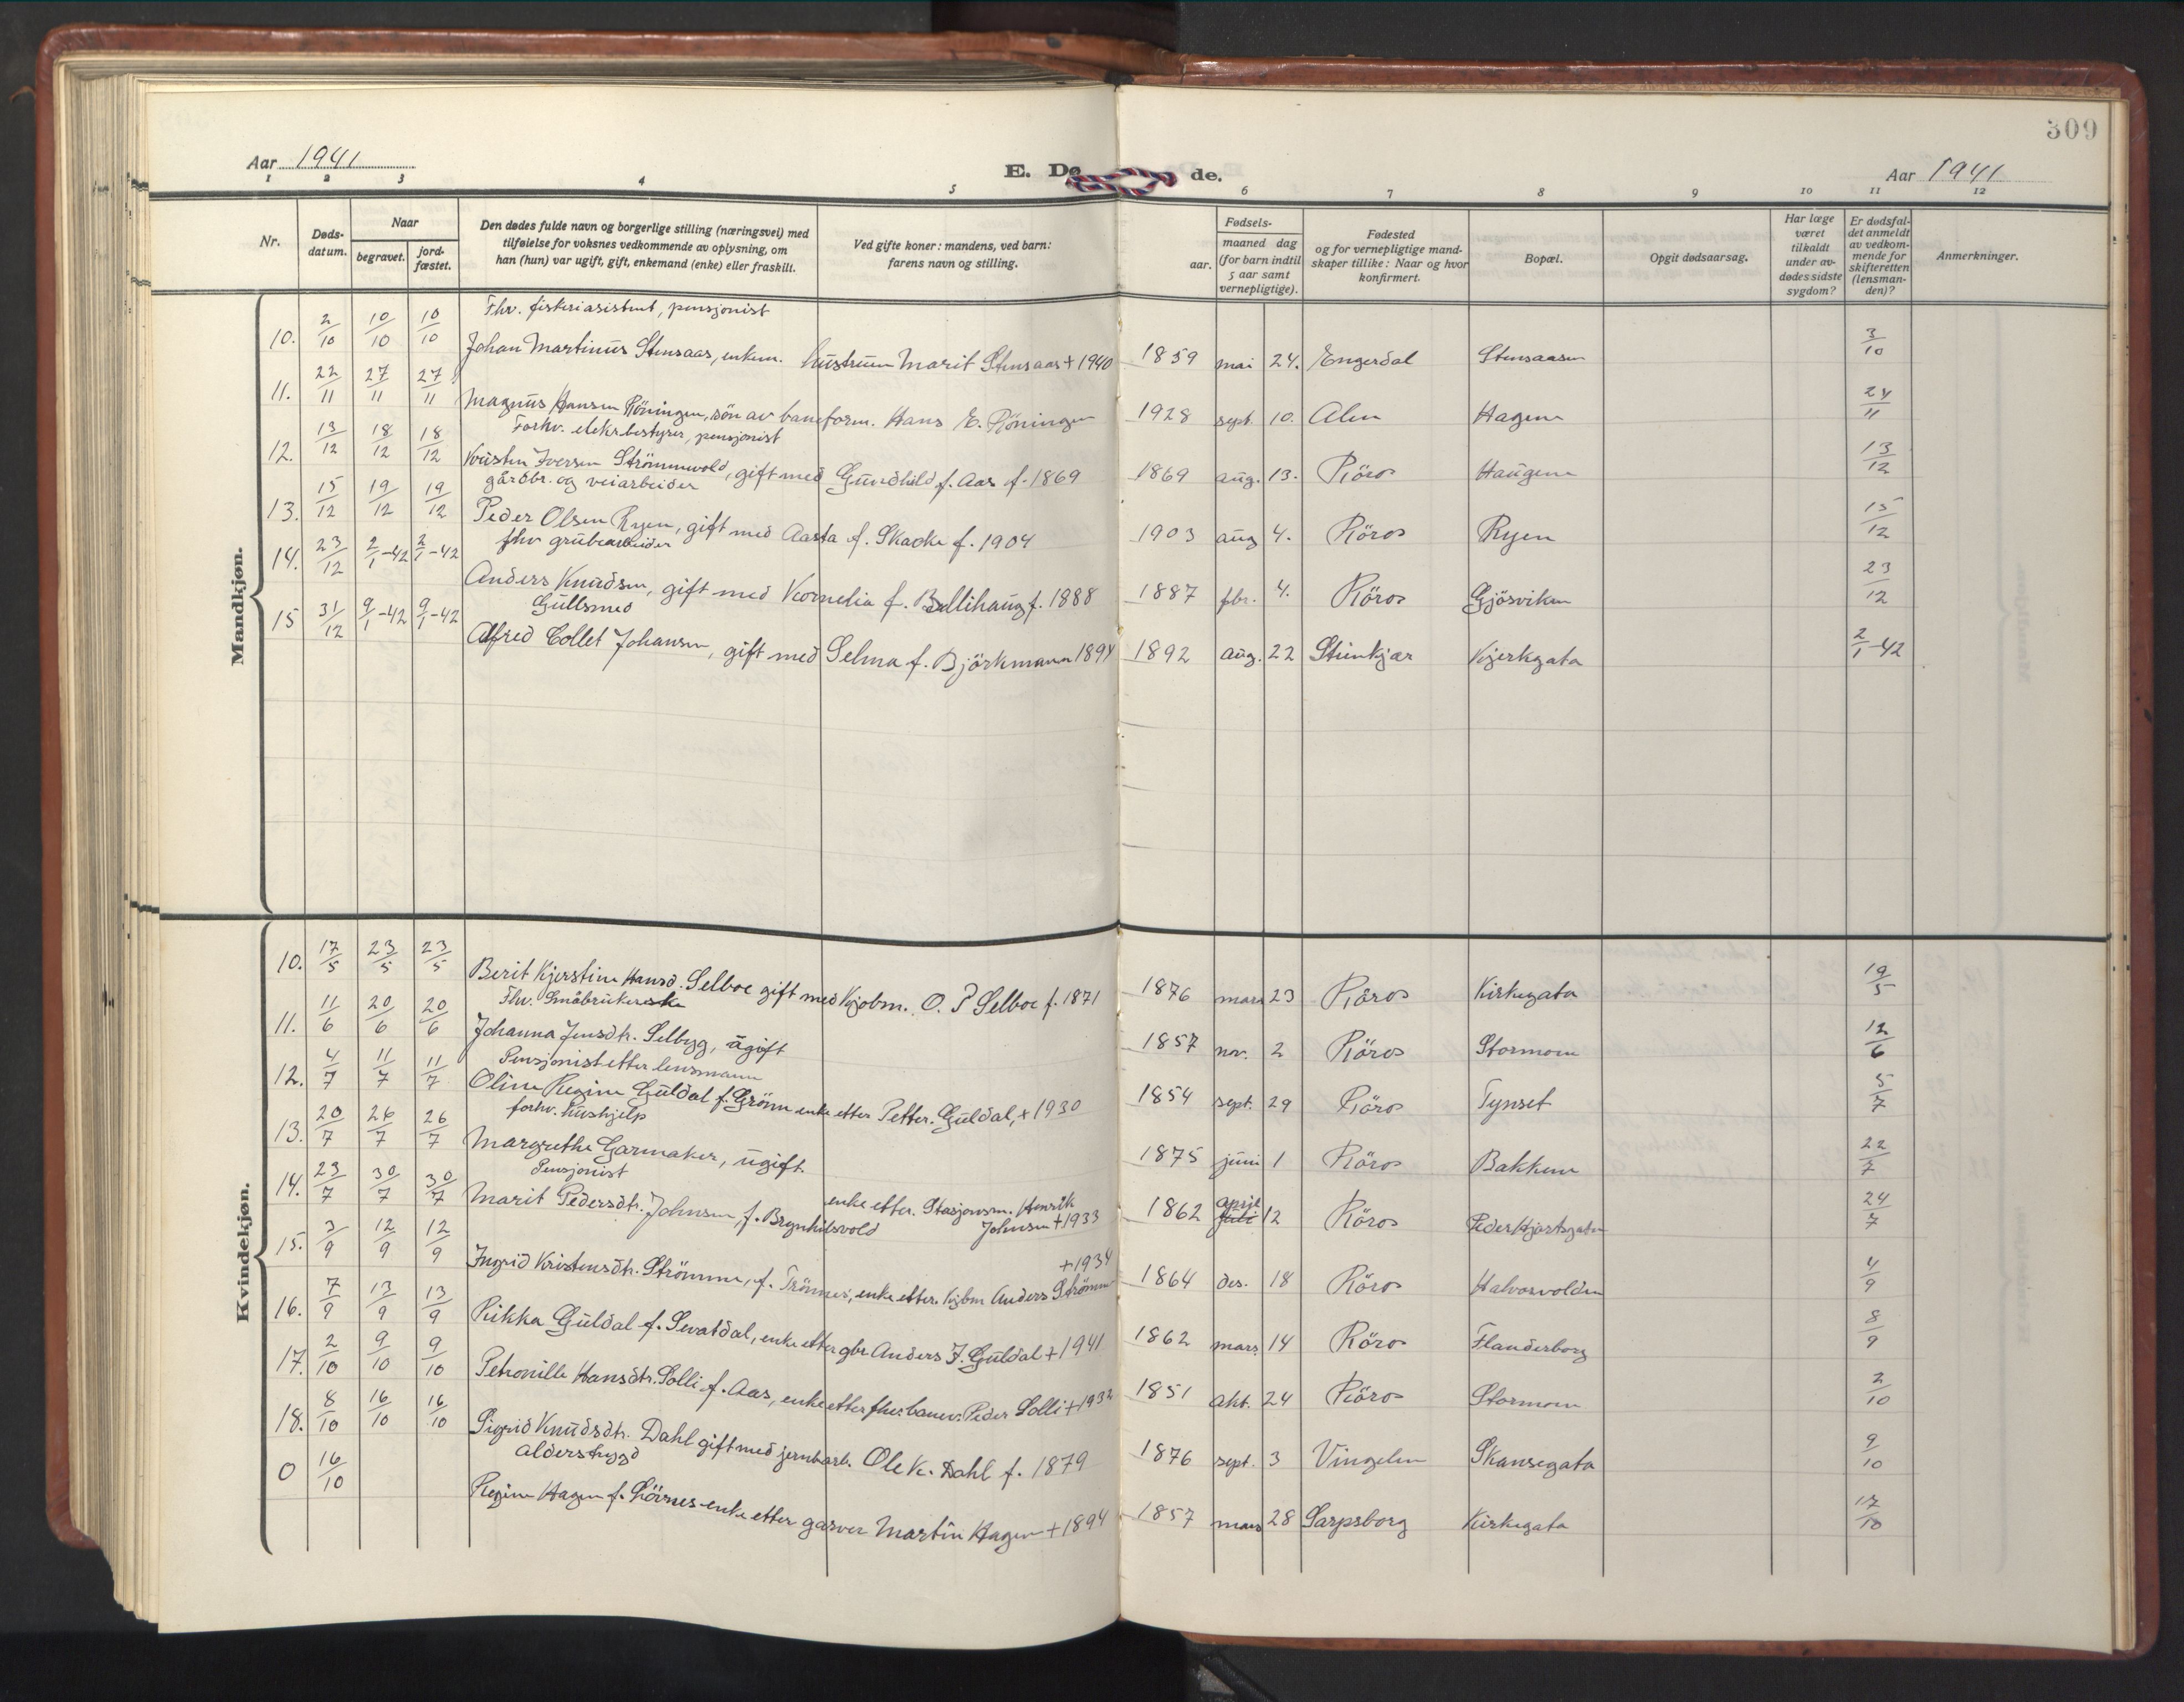 309
Aar 1941
E. Dø de.
Aar 1941
1 2 3 4 5 6 7 8 9 10 11 12
Nr.
Døds-
datum.
Naar
begravet.
jord-
fæstet.
Den dødes fulde navn og borgerlige stilling (næringsvei) med
tilføielse for voksnes vedkommende av oplysning, om
han (hun) var ugift, gift, enkemand (enke) eller fraskilt.
Ved gifte koner: mandens, ved barn:
farens navn og stilling.
Fødsels-
aar.
maaned dag
(for barn indtil
5 aar samt
vernepligtige).
Fødested
og for vernepligtige mand-
skaper tillike: Naar og hvor
konfirmert.
Bopæl.
Opgit dødsaarsag.
Har læge
været
tilkaldt
under av-
dødes sidste
sygdom?
Er dødsfal-
det anmeldt
av vedkom-
mende for
skifteretten
(lensman-
den)?
Anmerkninger.
Mandkjøn.
Fhv. fiskeriasistent, pensjonist
10. 2/10 10/10 10/10 Johan Martinus Stensaas, enkem. hustruen Marit Stensaas + 1940 1859 mai 24. Engerdal Stensaasen 3/10
11. 22/11 27/11 27/11 Magnus Hansen Röningen, sön av baneform. Hans E. Röningen 1928 sept. 10. Alen Hagen 24/11
Forhv. elekr.bestyrer, pensjonist
12. 13/12 18/12 18/12 Kristen Iversen Strömmevold, gift med Gundhild f. Aas f. 1869 1869 aug. 13. Röros Haugen 13/12
gårdbr. og veiarbeider
13. 15/12 19/12 19/12 Peder Olsen Ryen, gift med Aasta f. Skacke f. 1904 1903 aug 4. Röros Ryen 15/12
fhv grubearbeider
14. 23/12 2/1-42 2/1-42 Anders Knudsen, gift med Kornelia f. Bellihaug f. 1888 1887 fbr. 4. Röros Gjösviken 23/12
Gullsmed
15 31/12 9/1-42 9/1-42 Alfred Collet Johansen, gift med Selma f. Björkmann 1894 1892 aug. 22 Steinkjær Kjerkgata 2/1-42
Kvindekjøn.
10. 17/5 23/5 23/5 Berit Kjerstine Hansd. Selboe gift med Kjøbm. O. P Selboe f. 1871 1876 mars 23 Röros Kirkegata 19/5
Fhv. Småbrukerske
11. 11/6 20/6 20/6 Johanna Jensdtr. Selbygg, ugift 1857 nov. 2 Röros Stormoen 12/6
Pensjonist etter lensmann
12. 4/7 11/7 11/7 Oline Regine Guldal f. Grönn enke etter Petter. Guldal, + 1930 1854 sept. 29 Röros Tynset 5/7
forhv. hushjelp
13. 20/7 26/7 26/7 Margrethe Garmaker, ugift 1875 juni 1 Röros Bakken 22/7
Pensjonist
14. 23/7 30/7 30/7 Marit Pedersdtr. Johnsen, f. Brynhildsvold enke etter. Stasjonsm. Henrik Johnsen + 1933 1862 april 12 Röros Peder Hjortsgaten 24/7
15. 3/9 12/9 12/9 Ingrid Kristensdtr. Strömme, f. Trönnes, enke etter. Kjbm Anders Strömme + 1934 1864 des. 18 Röros Halvorsvolden 4/9
16. 7/9 13/9 13/9 Rikka Guldal f. Sevatdal, enke etter gbr Anders J. Guldal + 1941 1862 mars 14 Röros Flanderborg 8/9
17. 2/10 9/10 9/10 Petronille Hansdtr. Solli f. Aas, enke etter fhv banev. Peder Solli + 1932 1851 okt. 24 Röros Stormoen 2/10
18. 8/10 16/10 16/10 Sigrid Knudsdtr. Dahl gift med jernbarb. Ole K. Dahl f. 1879 1876 sept. 3 Vingelen Skansegata 9/10
alderstrygd
0 16/10 Regine Hagen f. enke etter garver Martin Hagen + 1894 1857 mars 28 Sarpsborg Kirkegata 17/10